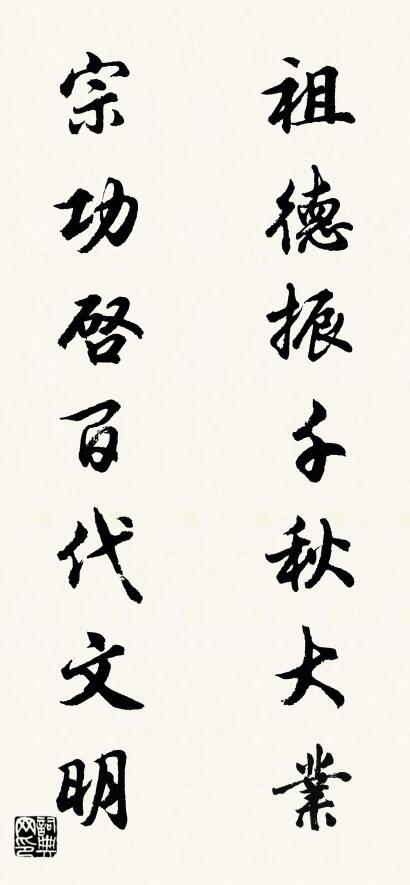 祖德振千秋大業
宗功啓百代文明
詞典网印